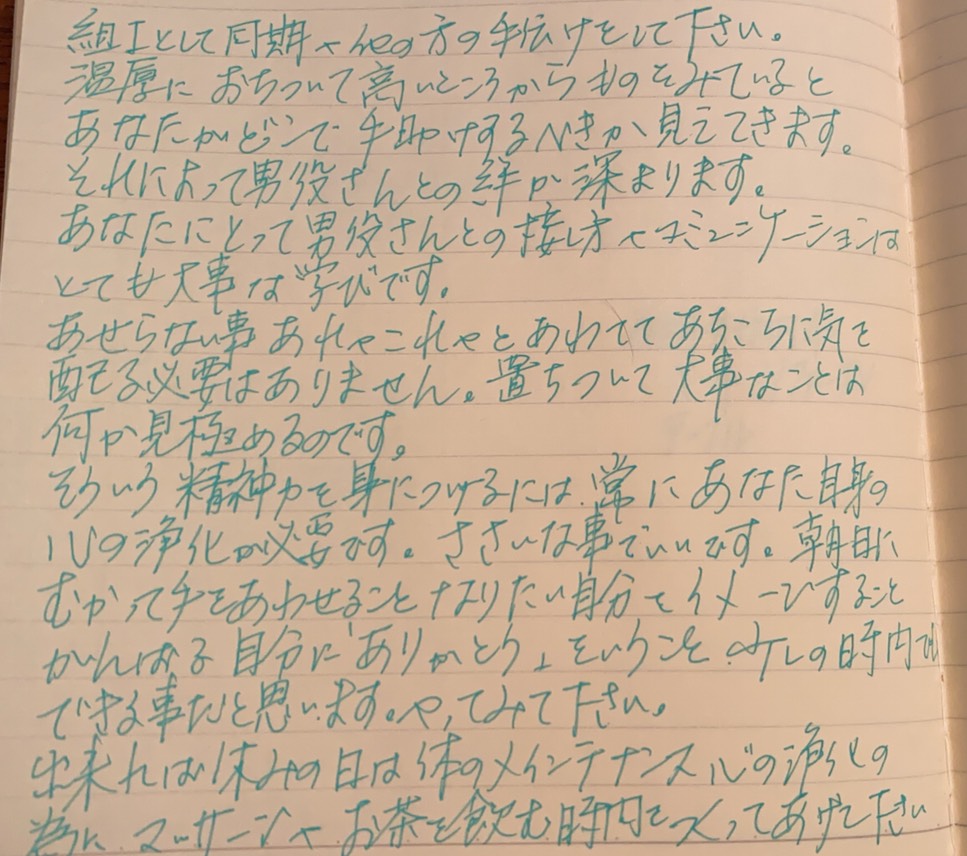 組Iとして同期や他の方の手伝けをして下さい。
温厚におちついて高いところからものをみていると
あなたがどこで手助けするべきか見えてきます。
それによって男役さんとの絆が深まります。
あなたにとって男役さんとの接し方やコミュニケーションは
とても大事な学びです。
あせらない事あれやこれやとあわててあちこちに気を
配る必要はありません。置ちついて大事なことは
何か見極めるのです。
そういう精神力を身につけるには常にあなた自身の
心の浄化が必要です。ささいな事でいいです。朝日に
むかって手をあわせることなりたい自分をイメージすること
がんばる自分に「ありがとう」ということ 少しの時間で
できる事だと思います。やってみて下さい。
出来れば休みの日は体のメインテナンス心の浄化の
為にマッサージやお茶を飲む時間をつくってあげて下さい